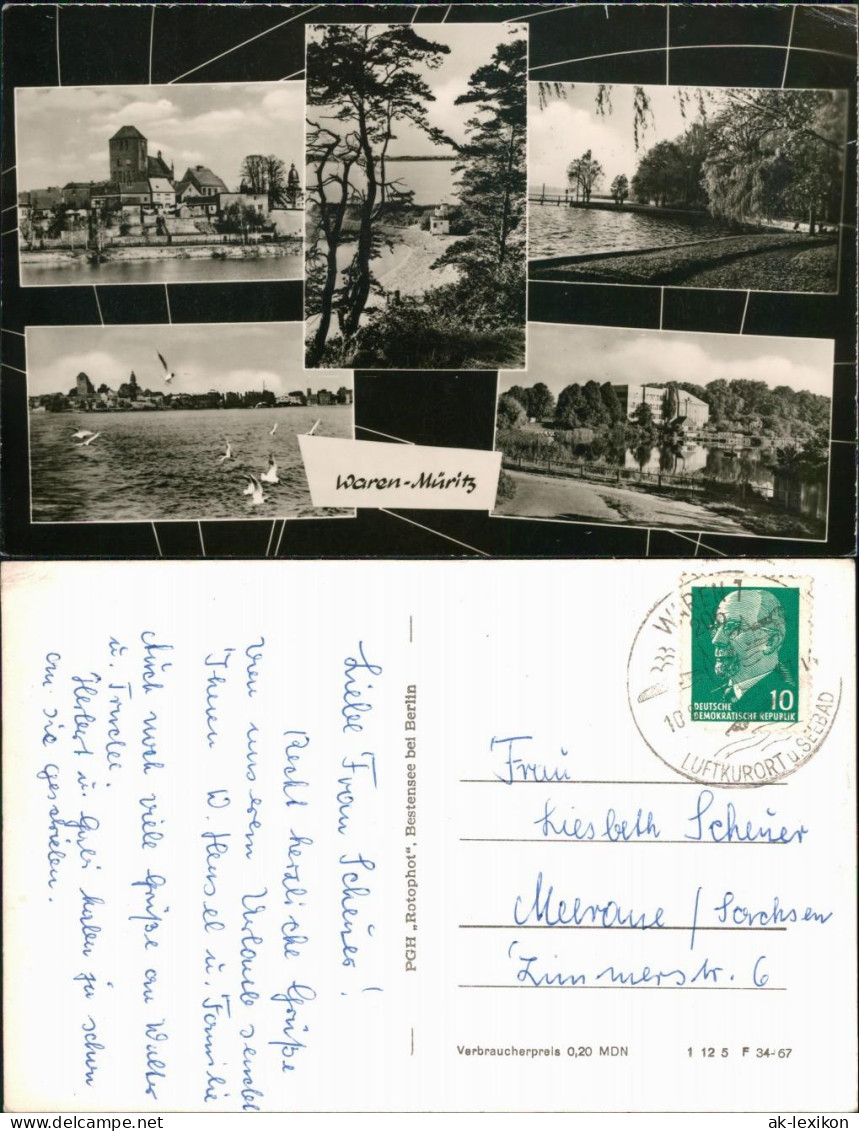 Waren-Müritz
Liebe Frau Scheuer!
Recht herzliche Grüße
von unserem Urlaub sendet
Ihnen W. Hensel u. Familie
Auch noch viele Grüße an Walter
u. Trudei
Herbert u. haben ja schon
an Sie geschrieben.
PGH „Rotophot“, Bestensee bei Berlin
WAREN 1
LUFTKURORT u. SEEBAD
10
DEUTSCHE
DEMOKRATISCHE REPUBLIK
Frau
Liesbeth Scheuer
Meerane / Sachsen
Zimmerstr. 6
Verbraucherpreis 0,20 MDN 1 12 5 F 34-67
ak-lexikon